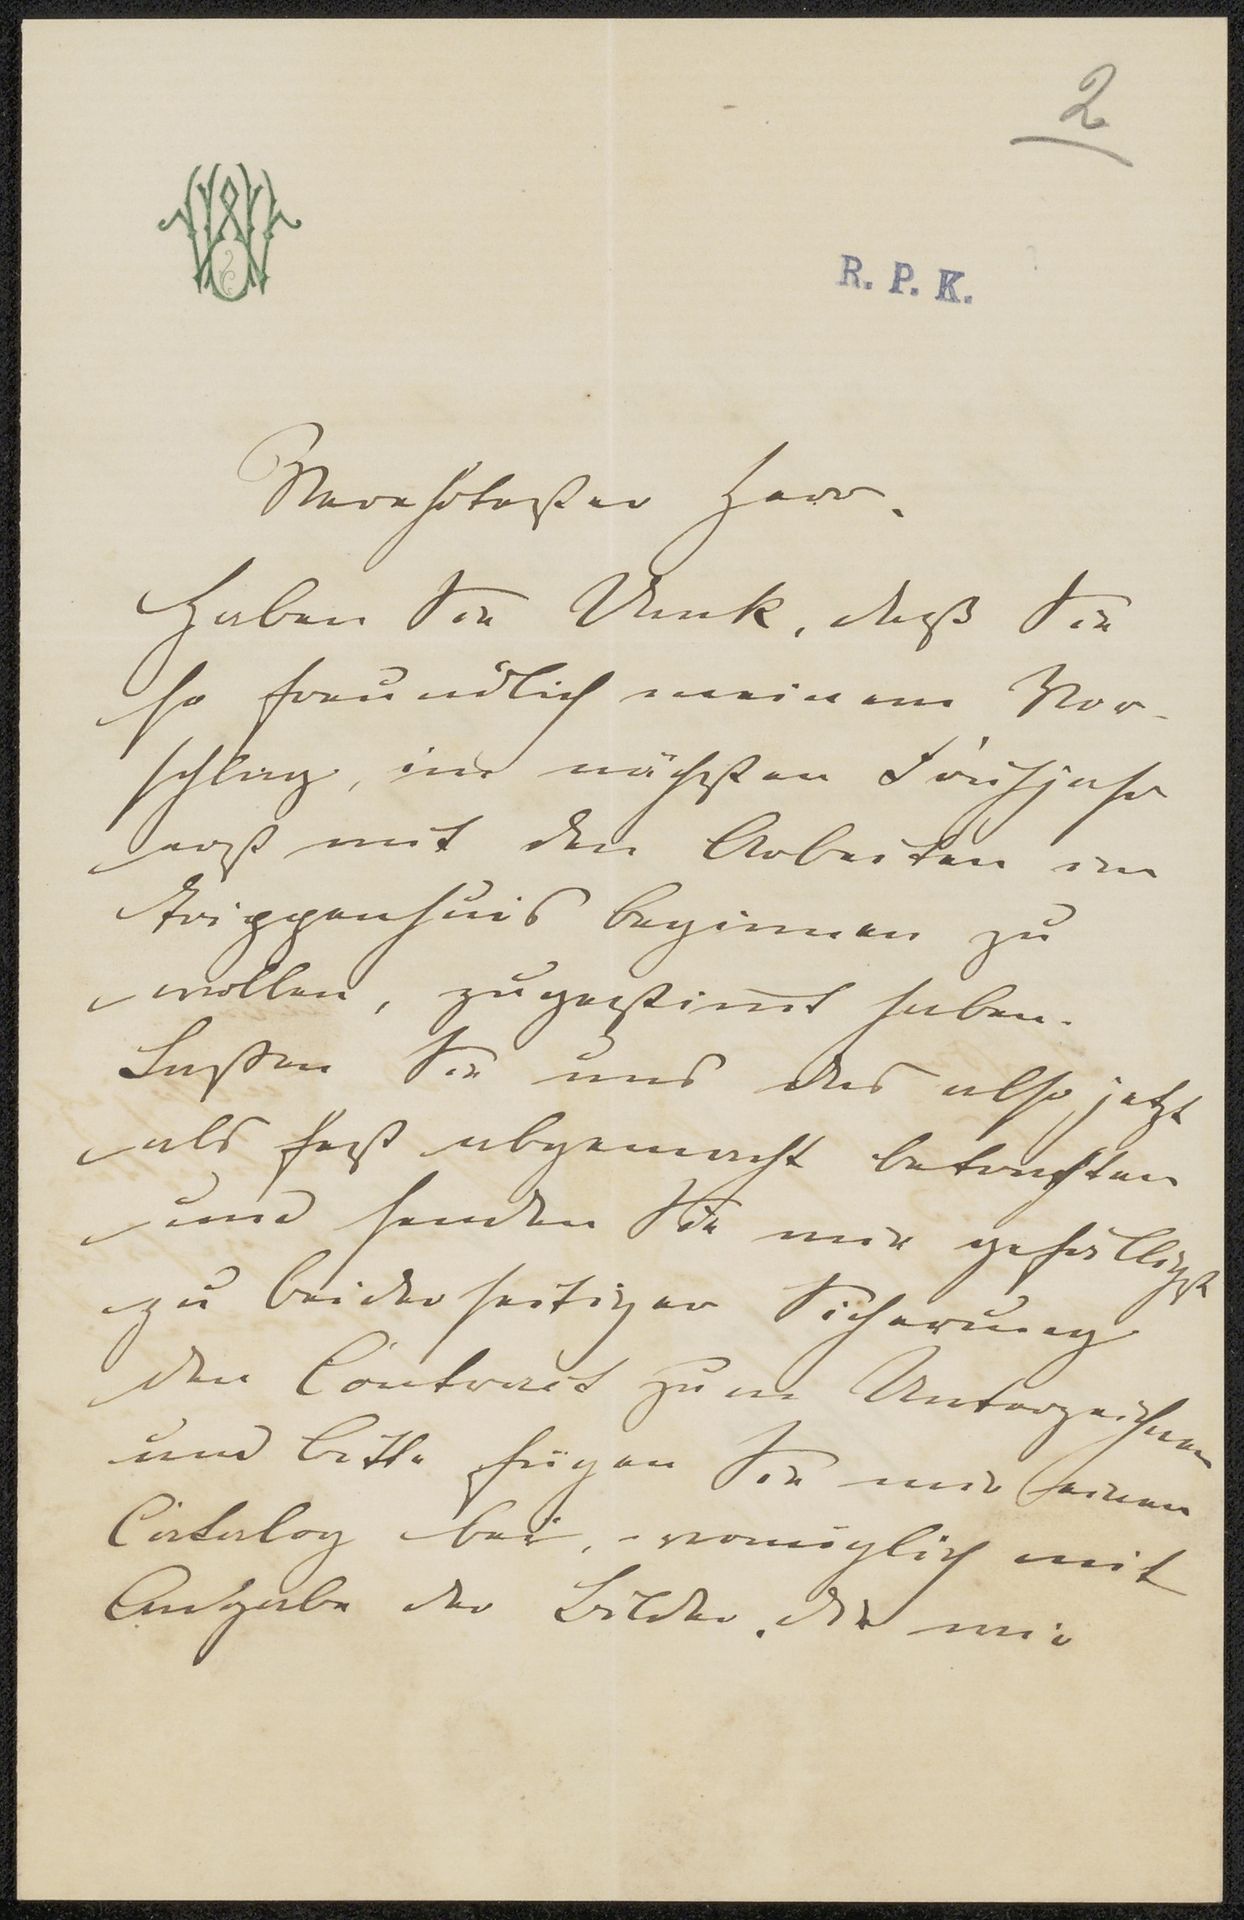 2
R. P. K.
Verehrtester Herr.
Haben Sie Dank, daß Sie
so freundlich meinem Vor-
schlag, im nächsten Frühjahr
erst mit den Arbeiten im
Trippenhuis beginnen zu
wollen, zugestimt haben.
Lassen Sie uns das also jetzt
als fest abgemacht betrachten
und senden Sie mir gefälligst
zu beiderseitiger Sicherung
den Contract zum Unterzeichnen
und bitte fügen Sie mir einen
Catalog bei, womöglich mit
Angabe der Bilder, die wir